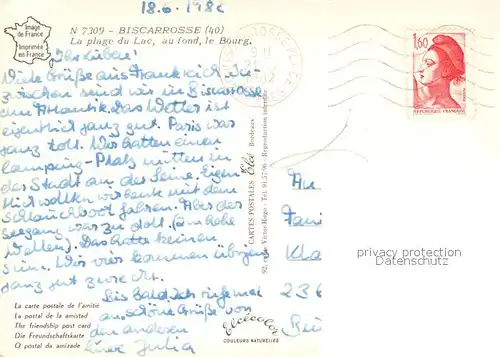 18.6.1982
N 7309 - BISCARROSSE (40)
La plage du Lac, au fond, le Bourg.
Image
de France
Imprimée
en France
Ihr Lieben!
Viele Grüße aus Frankreich. In-
zwischen sind wir in Biscarosse
am Atlantik. Das Wetter ist
eigentlich ganz gut. Paris war
ganz toll. Wir hatten einen
Camping-Platz mitten in
der Stadt an der Seine. Eigent
lich wollten wir heute mit dem
Schlauchboot fahren. Aber der
Seegang war zu doll. (zu hohe
Wellen). Das hatte keinen
Sinn. Wir vier kommen übrigens
ganz gut zurecht.
Bis bald, ich rufe mal
an schöne Grüße von
den anderen
Eure Julia
La carte postale de l'amitié
La postal de la amistad
The friendship post card
Die Freundschaftskarte
O postal da amizade
Elcécolor
COULEURS NATURELLES
CARTES POSTALES Elcé Bordeaux
92, rue Victor Hugo - Tél. 91.57.96 - Reproduction interdite
1,60
REPUBLIQUE FRANÇAISE
An
Fami
Kla
236
privacy protection
Datenschutz